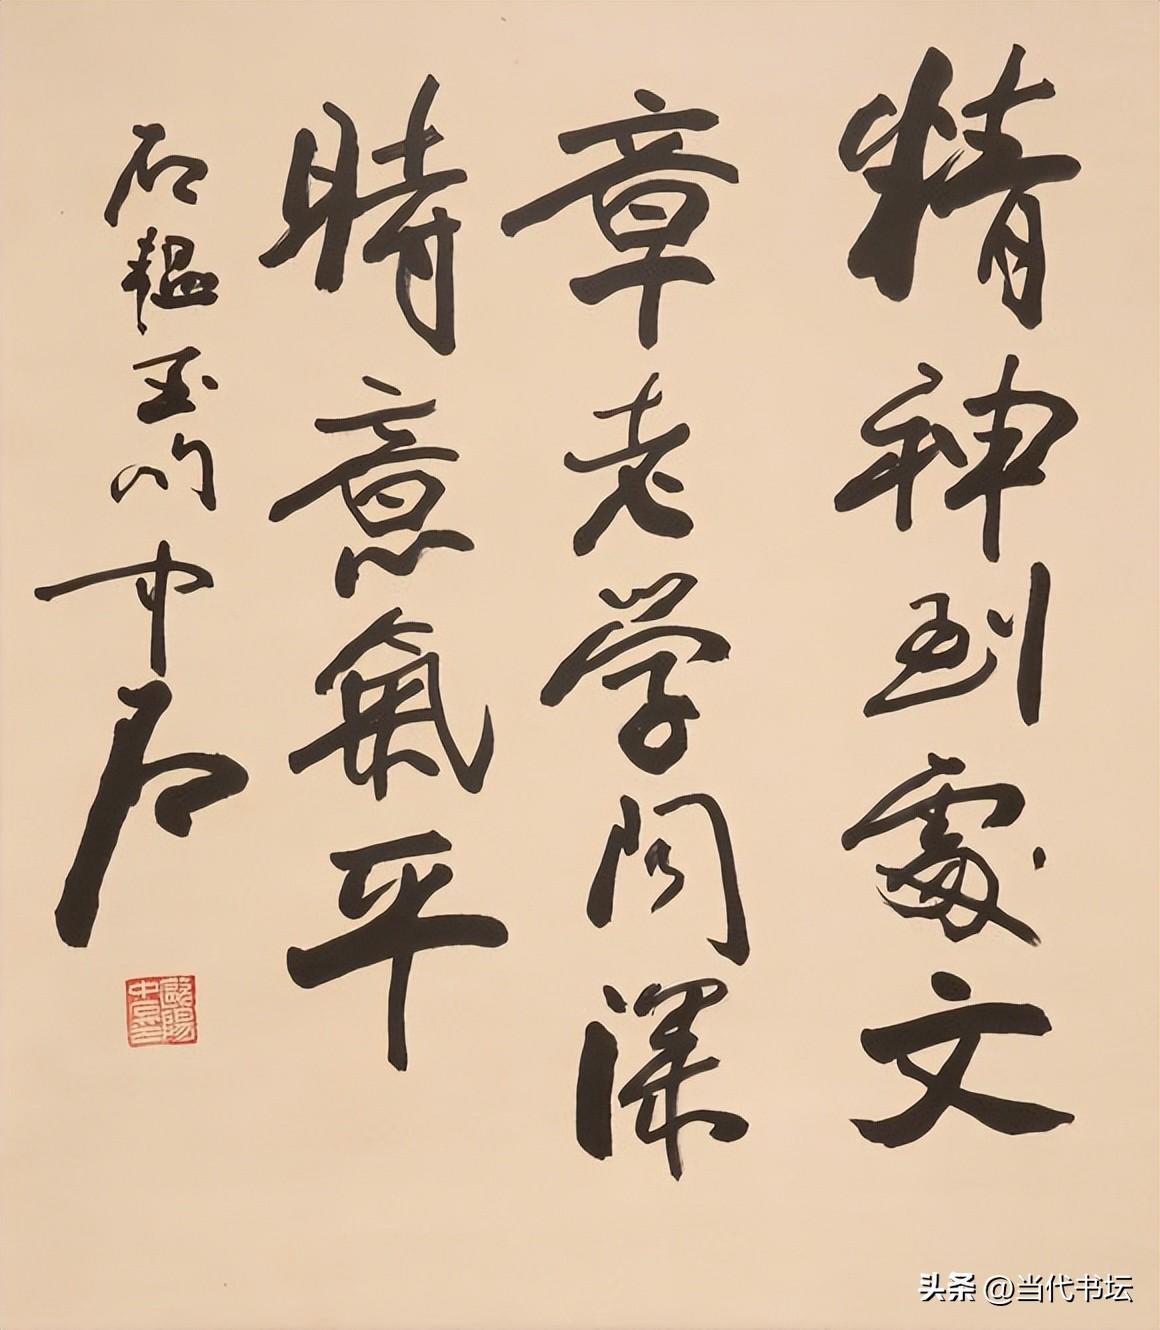 精神到處文
章老学问深
時意氣平
石韞玉句 中石
歐陽中石印
头条 @当代书坛